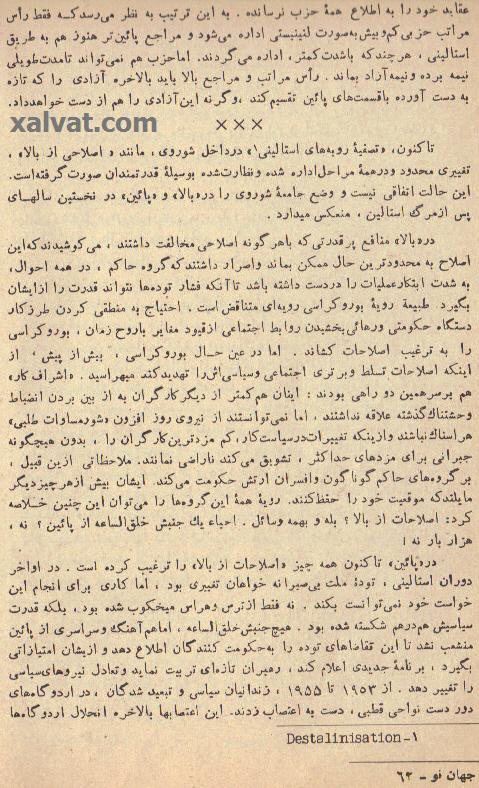 عقاید خود را به اطلاع همهٔ حزب نرسانده . به این ترتیب به نظر می‌رسد که فقط رأس
مراتب حزبی کم و بیش به صورت لنینیستی اداره می‌شود و مراجع پائین‌تر هنوز هم به طریق
استالینی ، هرچند که باشدت کمتر ، اداره می‌گردند. اما حزب هم نمی‌تواند تامدت طویلی
نیمه برده و نیمه آزاد بماند . رأس مراتب و مراجع بالا باید بالاخره آزادی را که تازه
به دست آورده باقسمت‌های پائین تقسیم کند ، وگرنه این آزادی را هم از دست خواهد داد.
xalvat.com
×××
تا کنون، «تصفیهٔ رویه‌های استالینی۱» در داخل شوروی ، مانند « اصلاحی از بالا» ،
تغییری محدود و در همهٔ مراحل اداره شده و نظارت شده بوسیلهٔ قدرتمندان صورت گرفته است.
این حالت اتفاقی نیست و وضع جامعهٔ شوروی را در «بالا» و «پائین» در نخستین سالهـای
پس از مرگ استالین ، منعکس میدارد .
در «بالا» منافع پر قدرتی که باهر گونه اصلاحی مخالفت داشتند ، می‌کوشیدند که این
اصلاح به محدودترین حال ممکن بماند و اصرار داشتند که گروه حاکم ، در همه احوال،
به شدت ابتکار عملیات را در دست داشته باشد تا آنکه فشار توده‌ها نتواند قدرت را از ایشان
بگیرد . طبیعة رویهٔ بوروکراسی رویه‌ای متناقض است . احتیاج به منطقی کردن طرز کار
دستگاه حکومتی و رهائی بخشیدن روابط اجتماعی از قیود مغایر باروح زمان ، بوروکراسی
را به ترغیب اصلاحات کشاند . اما در عین حـال بوروکراسی ، بیش از پیش ، از
اینکه اصلاحات تسلط و برتری اجتماعی و سیاسی‌اش را تهدید کند میهراسید . «اشراف کار»
هم بر سر همین دو راهی بودند : اینان هم کمتر از دیگر کارگران به از بین بردن انضباط
وحشتناك گذشته علاقه نداشتند ، اما نمی‌توانستند از نیروی روز افزون «شور مساوات طلبی»
هراسناك نباشند و از ینکه تغییرات در سیاست کار ، کم مزدترین کارگران را ، بدون هیچگونه
جبرانی برای مزدهای حداکثر ، تشویق می‌کند ناراضی نمانند. ملاحظاتی ازین قبیل ،
بر گروه‌های حاکم گوناگون و افسران ارتش حکومت می‌کند. ایشان بیش از هر چیز دیگر
مایلند که موقعیت خود را حفظ کنند. رویهٔ همهٔ این گروه‌ها را می‌توان این چنین خـلاصه
کرد: اصلاحات از بالا ؟ بله و بهمه وسائل . احیاء یك جنبش خلق‌الساعه از پائین ؟ نه ،
هزار بار نه !
در «پائین» تا کنون همه چیز «اصلاحات از بالا» را ترغیب کرده است . در اواخر
دوران استالینی ، تودهٔ ملت بی‌صبرانه خواهان تغییری بود ، اما کاری برای انجام این
خواست خود نمی‌توانست بکند . نه فقط از ترس و هراس میخکوب شده بود ، بلکه قدرت
سیاسیش هم در هم شکسته شده بود . هیچ جنبش خلق‌الساعه ، اما هم آهنگ و سراسری از پائین
منشعب نشد تا این تقاضاهای توده را به حکومت کنندگان اطلاع دهد و از یشان امتیازاتی
بگیرد ، برنامهٔ جدیدی اعلام کند ، رهبران تازه‌ای تربیت نماید و تعادل نیروهای سیاسی
را تغییر دهد . از ۱۹۵۳ تا ۱۹۵۵ ، زندانیان سیاسی و تبعید شدگان ، در اردوگاه‌های
دور دست نواحی قطبی ، دست به اعتصاب زدند. این اعتصابها بالاخره انحلال اردوگاه‌ها
۱- Destalinisation
جهان نو - ۶۲